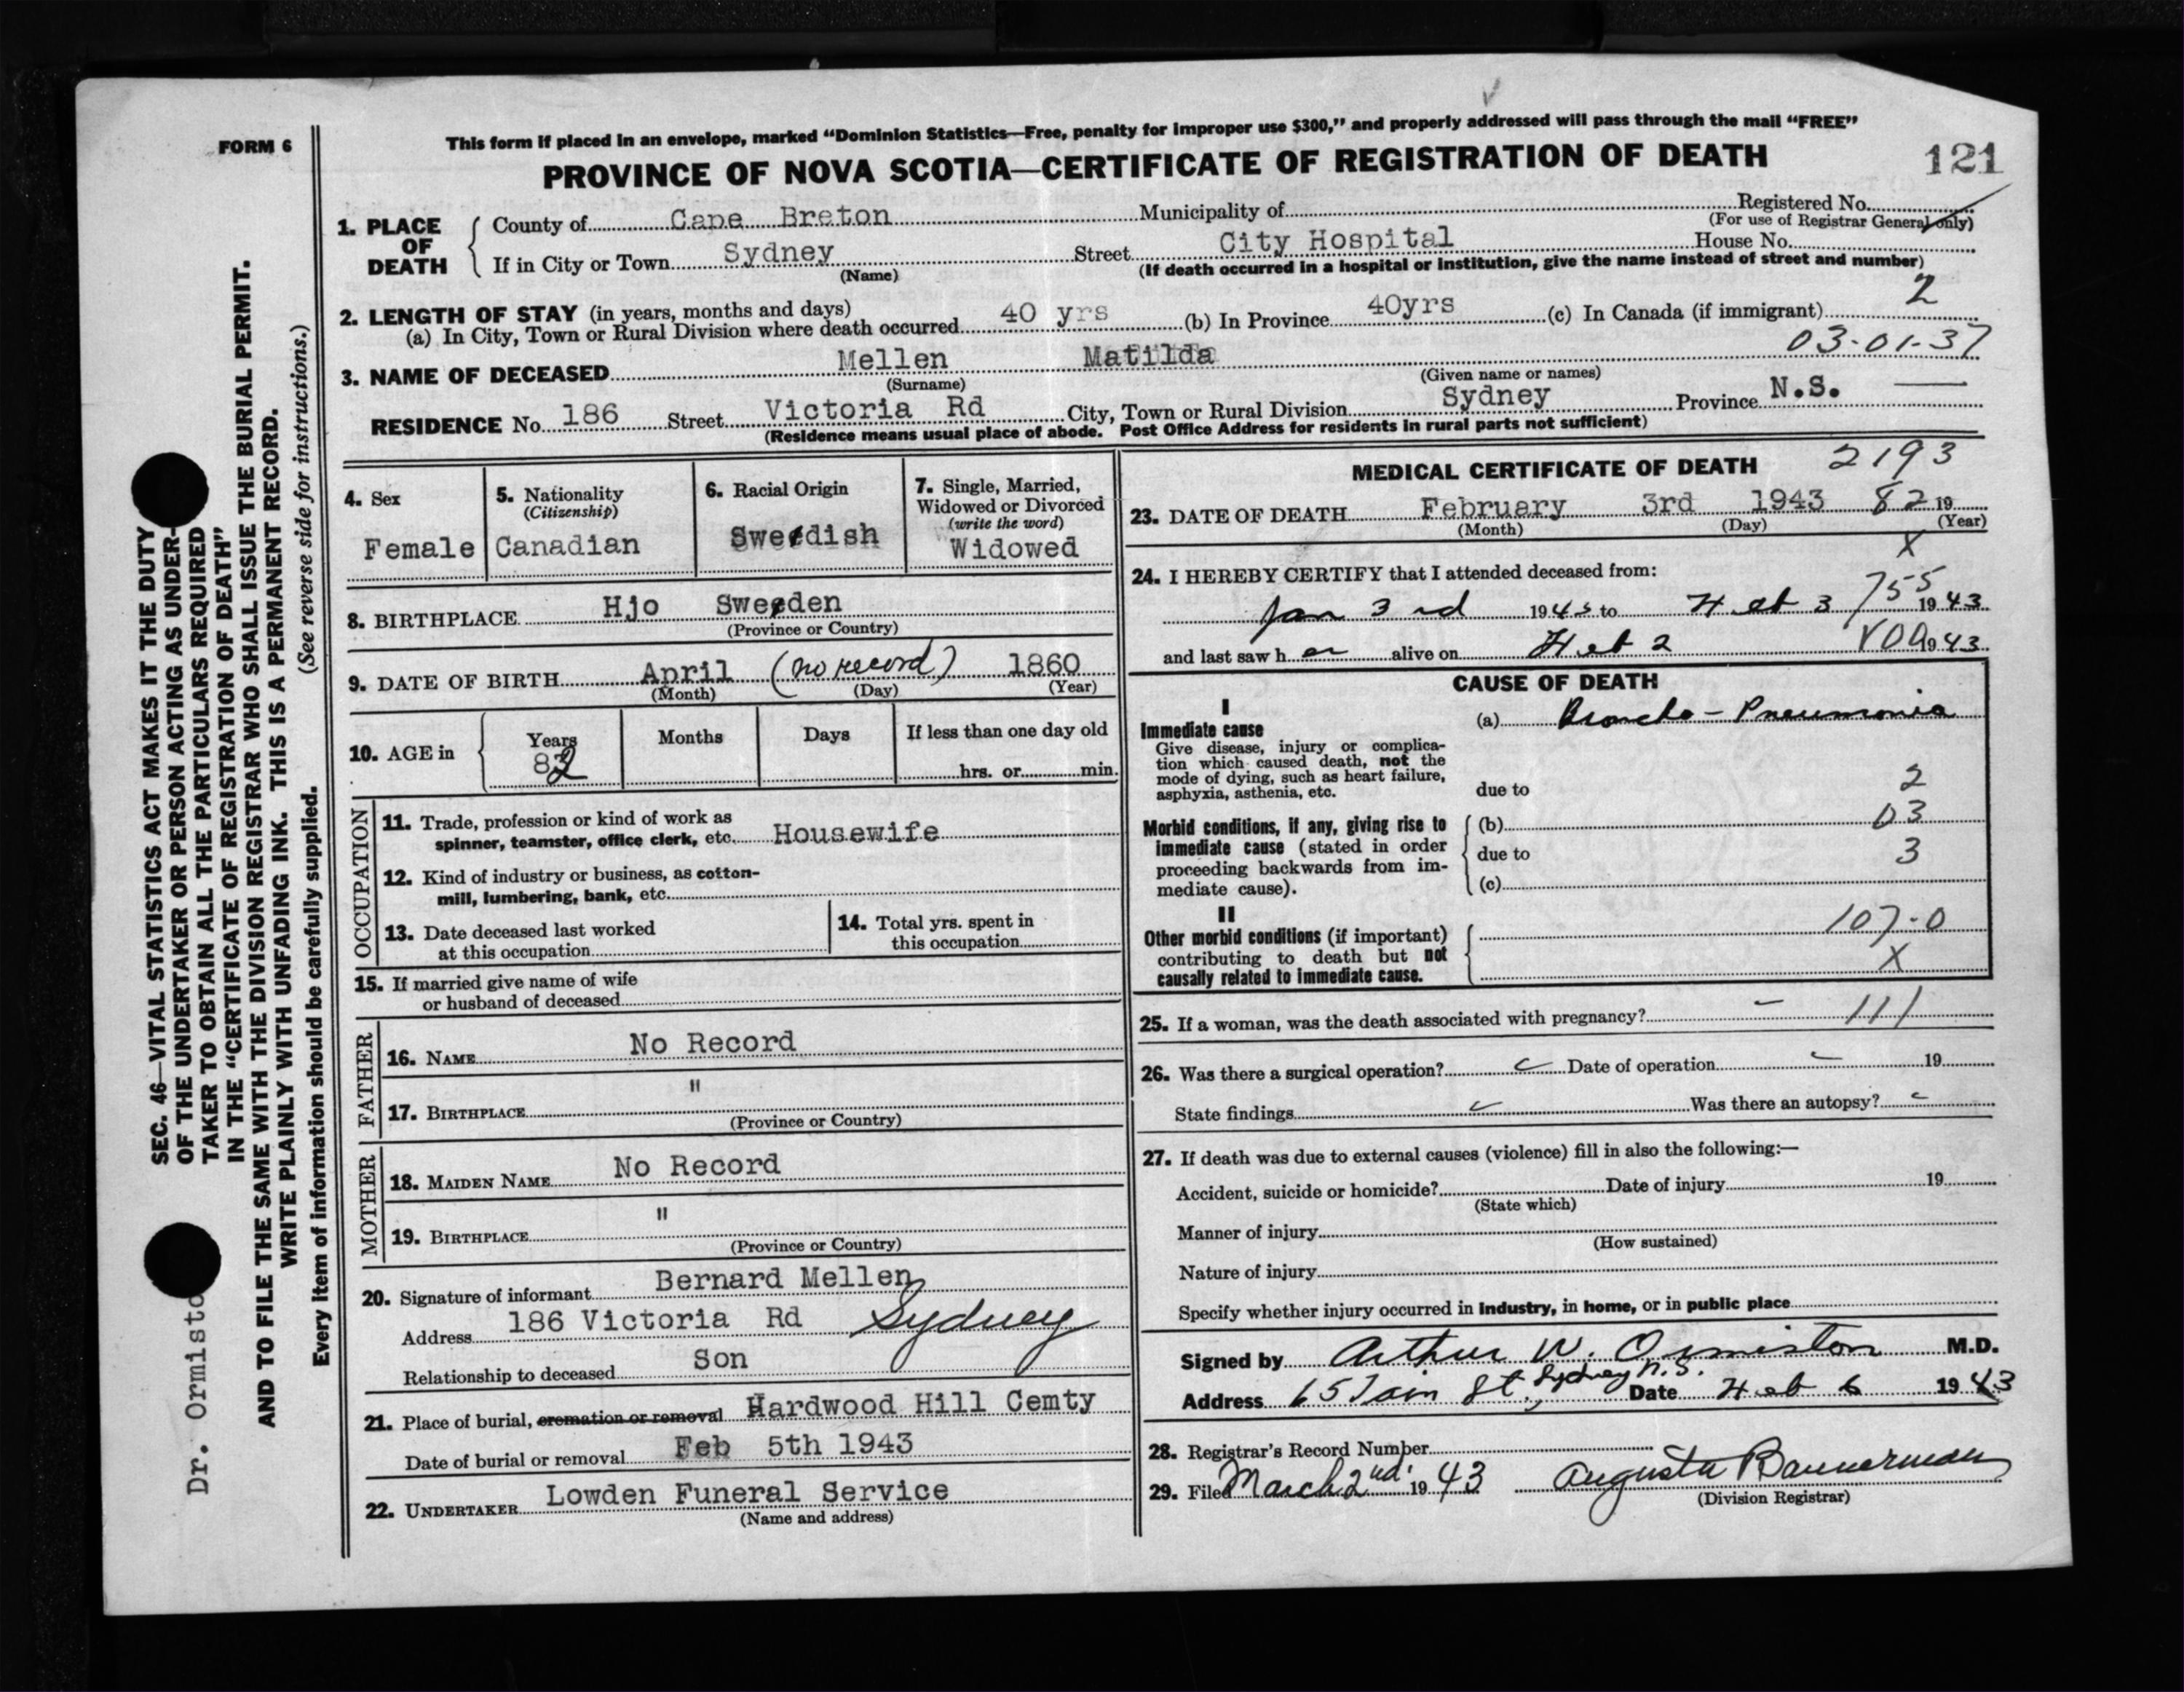 FORM 6
This form if placed in an envelope, marked "Dominion Statistics—Free, penalty for improper use $300," and properly addressed will pass through the mail "FREE"
PROVINCE OF NOVA SCOTIA—CERTIFICATE OF REGISTRATION OF DEATH
121
1. PLACE OF DEATH
County of Cape Breton Municipality of Registered No.
(For use of Registrar General only)
If in City or Town Sydney Street City Hospital House No.
(Name) (If death occurred in a hospital or institution, give the name instead of street and number)
2. LENGTH OF STAY (in years, months and days)
(a) In City, Town or Rural Division where death occurred 40 yrs (b) In Province 40yrs (c) In Canada (if immigrant) 2
03-01-37
3. NAME OF DECEASED Mellen Matilda
(Surname) (Given name or names)
RESIDENCE No. 186 Street Victoria Rd City, Town or Rural Division Sydney Province N.S.
(Residence means usual place of abode. Post Office Address for residents in rural parts not sufficient)
4. Sex
Female
5. Nationality
(Citizenship)
Canadian
6. Racial Origin
Swedish
7. Single, Married,
Widowed or Divorced
(write the word)
Widowed
8. BIRTHPLACE Hjo Sweden
(Province or Country)
9. DATE OF BIRTH April (no record) 1860
(Month) (Day) (Year)
10. AGE in
Years Months Days If less than one day old
82 hrs. or min.
OCCUPATION
11. Trade, profession or kind of work as
spinner, teamster, office clerk, etc. Housewife
12. Kind of industry or business, as cotton-
mill, lumbering, bank, etc.
13. Date deceased last worked
at this occupation
14. Total yrs. spent in
this occupation
15. If married give name of wife
or husband of deceased
FATHER
16. NAME No Record
17. BIRTHPLACE "
(Province or Country)
MOTHER
18. MAIDEN NAME No Record
19. BIRTHPLACE "
(Province or Country)
20. Signature of informant Bernard Mellen
Address 186 Victoria Rd Sydney
Relationship to deceased Son
21. Place of burial, cremation or removal Hardwood Hill Cemty
Date of burial or removal Feb 5th 1943
22. UNDERTAKER Lowden Funeral Service
(Name and address)
MEDICAL CERTIFICATE OF DEATH 2193
23. DATE OF DEATH February 3rd 1943 82 19
(Month) (Day) (Year)
X
24. I HEREBY CERTIFY that I attended deceased from:
Jan 3rd 1943 to Feb 3 755 1943
and last saw her alive on Feb 2 1943
CAUSE OF DEATH
I
Immediate cause
Give disease, injury or complica-
tion which caused death, not the
mode of dying, such as heart failure,
asphyxia, asthenia, etc.
(a) Broncho-Pneumonia
due to 2
Morbid conditions, if any, giving rise to
immediate cause (stated in order
proceeding backwards from im-
mediate cause).
(b) 03
due to 3
(c)
II
Other morbid conditions (if important)
contributing to death but not
causally related to immediate cause.
107-0
X
25. If a woman, was the death associated with pregnancy? – 111
26. Was there a surgical operation? Date of operation 19
State findings Was there an autopsy?
27. If death was due to external causes (violence) fill in also the following:—
Accident, suicide or homicide? Date of injury 19
(State which)
Manner of injury
(How sustained)
Nature of injury
Specify whether injury occurred in industry, in home, or in public place
Signed by Arthur W. Ormiston M.D.
Address 65 St., Sydney N.S. Date Feb 6 1943
28. Registrar's Record Number
29. Filed March 2nd. 1943 Augusta Bannerman
(Division Registrar)
SEC. 46—VITAL STATISTICS ACT MAKES IT THE DUTY
OF THE UNDERTAKER OR PERSON ACTING AS UNDER-
TAKER TO OBTAIN ALL THE PARTICULARS REQUIRED
IN THE "CERTIFICATE OF REGISTRATION OF DEATH"
AND TO FILE THE SAME WITH THE DIVISION REGISTRAR WHO SHALL ISSUE THE BURIAL PERMIT.
WRITE PLAINLY WITH UNFADING INK. THIS IS A PERMANENT RECORD.
Every item of information should be carefully supplied. (See reverse side for instructions.)
Dr. Ormisto